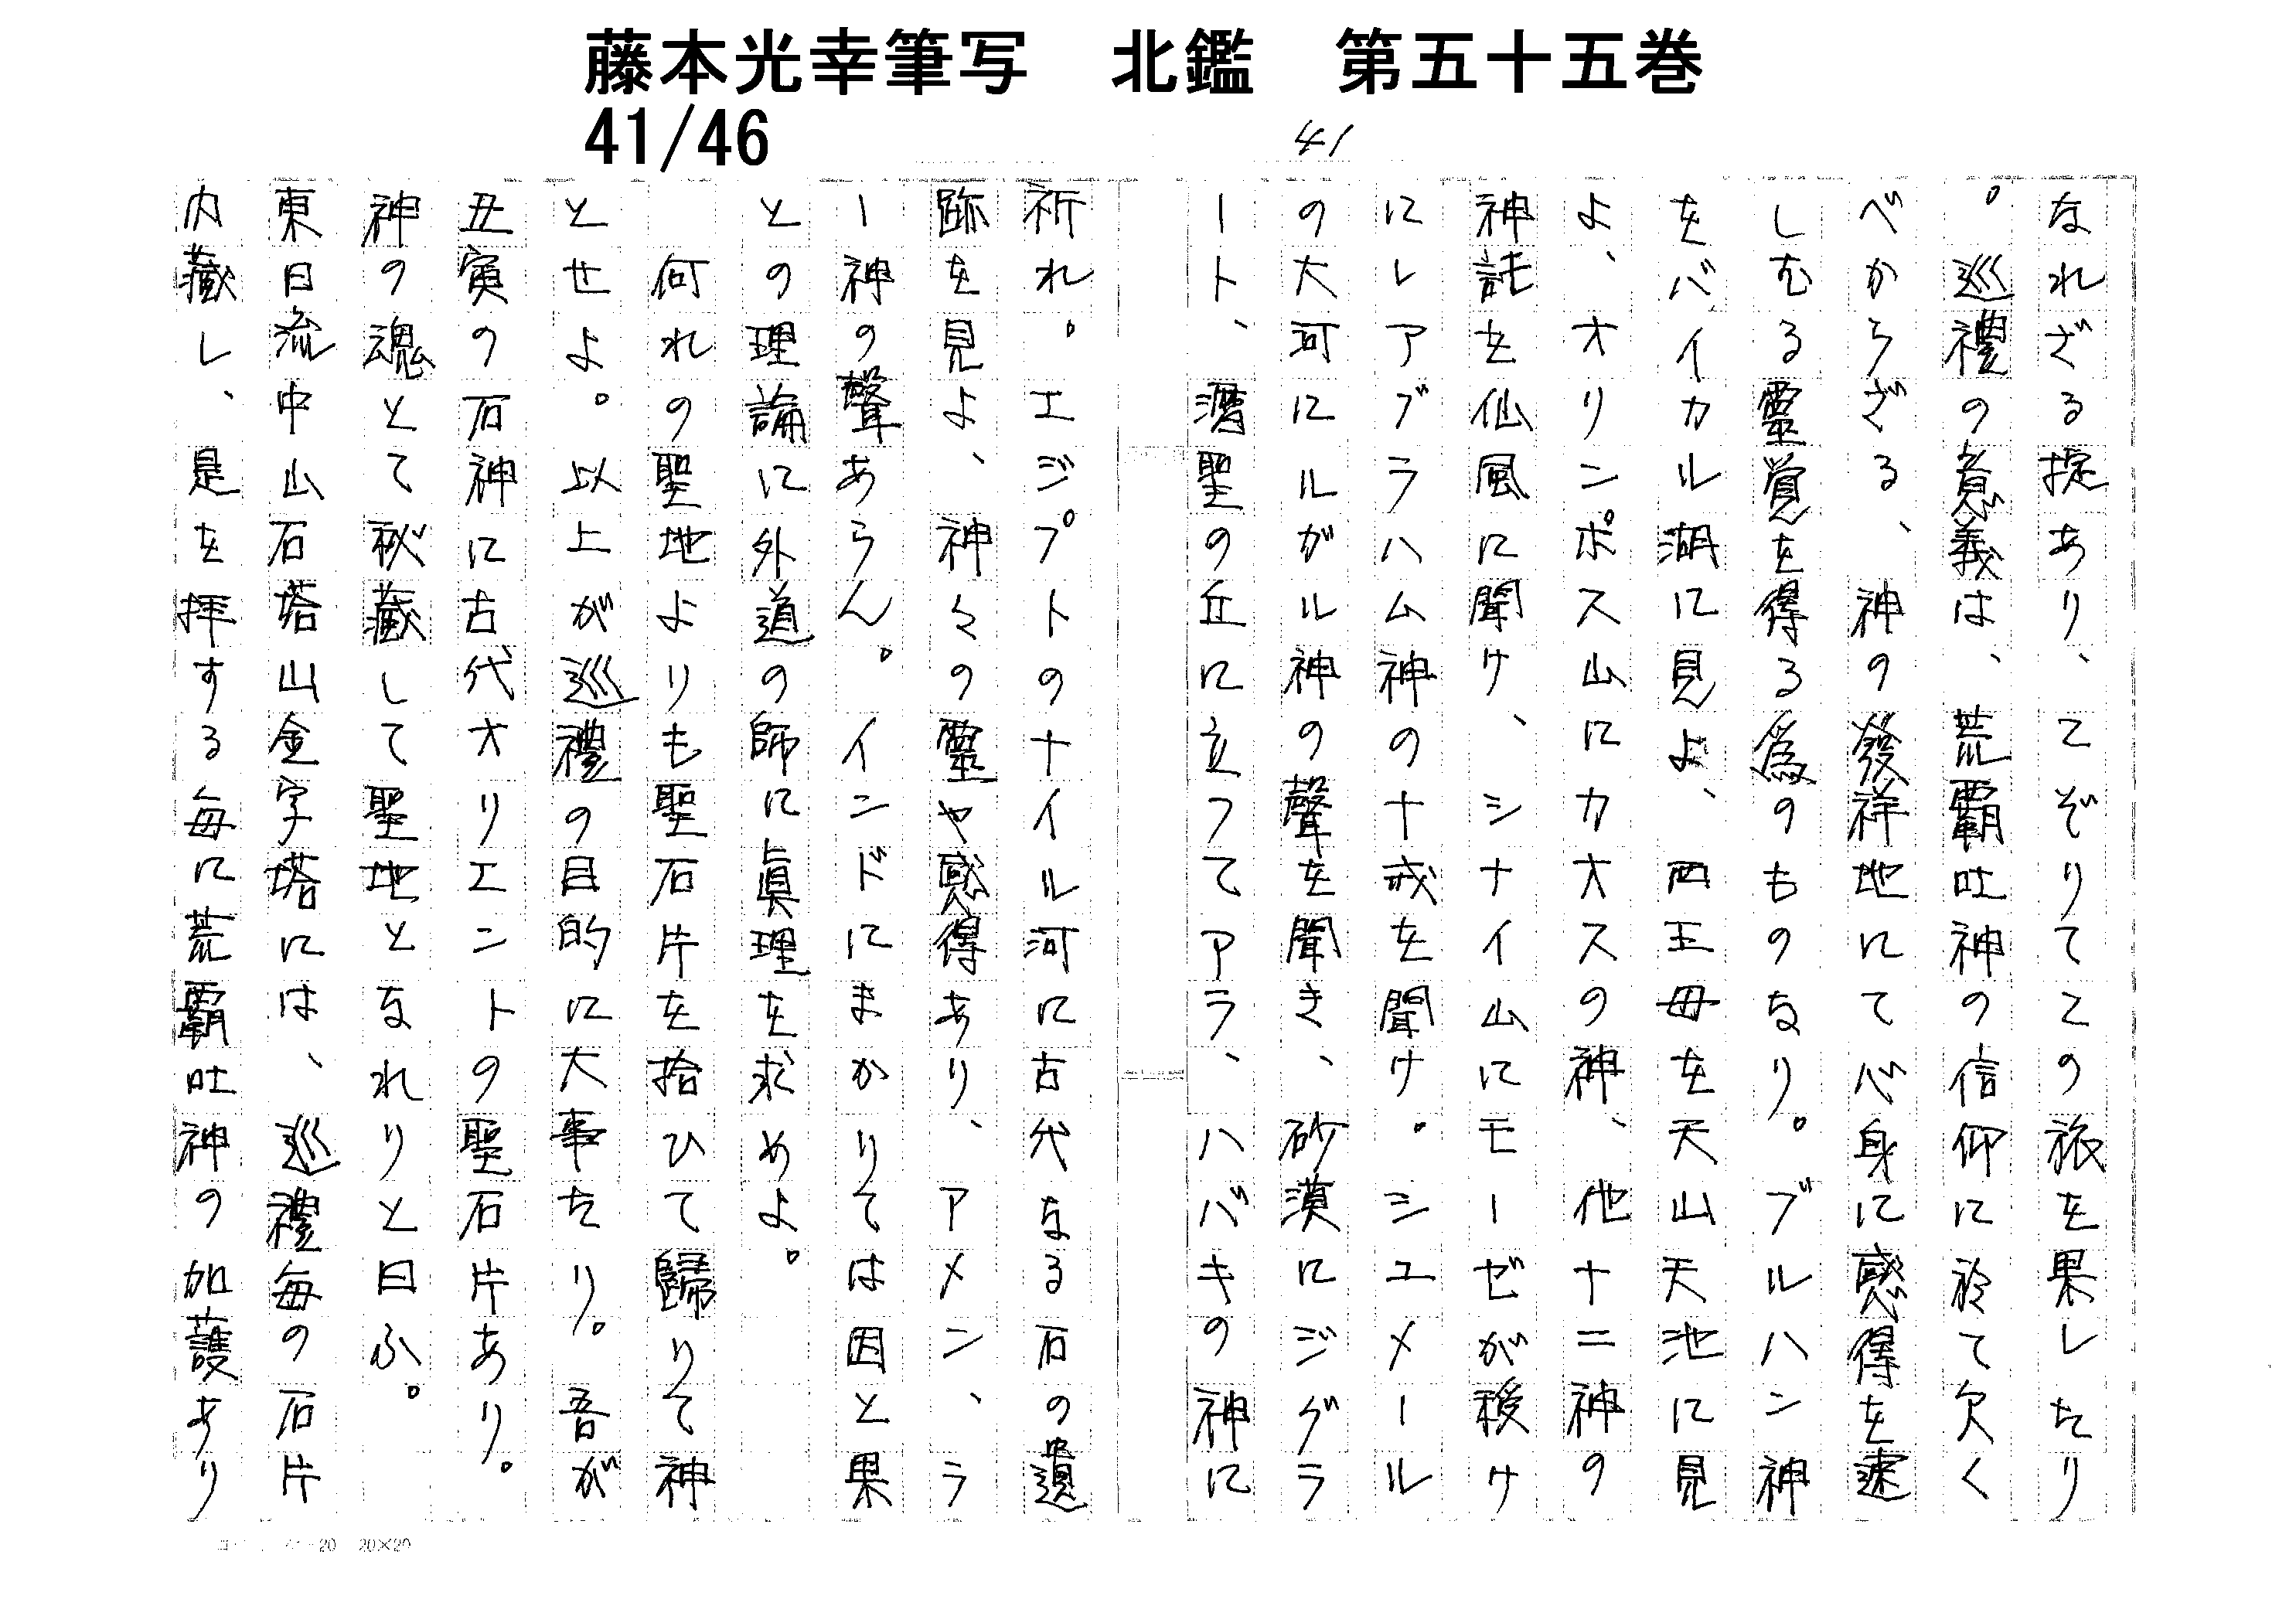 藤本光幸筆写　北鑑　第五十五巻
41/46
41
なれざる掟あり、こぞりてこの旅を果したり
。巡禮の意義は、荒覇吐神の信仰に於て欠く
べからざる、神の發祥地にて心身に感得を速
しむる靈覚を得る為のものなり。ブルハン神
をバイカル湖に見よ、西王母を天山天池に見
よ、オリンポス山にカオスの神、他十二神の
神託を仙風に聞け、シナイ山にモーゼが授け
にしアブラハム神の十戒を聞け。シュメール
の大河にルガル神の聲を聞き、砂漠にジグラ
ート、濳聖の丘に立ってアラ、ハバキの神に
祈れ。エジプトのナイル河に古代なる石の遺
跡を見よ、神々の靈や感得あり、アメン、ラ
ー神の聲あらん。インドにまかりては因と果
との理論に外道の師に眞理を求めよ。
何れの聖地よりも聖石片を拾ひて歸りて神
とせよ。以上が巡禮の目的に大事たり。吾が
丑寅の石神に古代オリエントの聖石片あり。
神の魂とて秘藏して聖地となれりと曰ふ。
東日流中山石塔山金字塔には、巡禮毎の石片
内藏し、是を拝する毎に荒覇吐神の加護あり
20×20